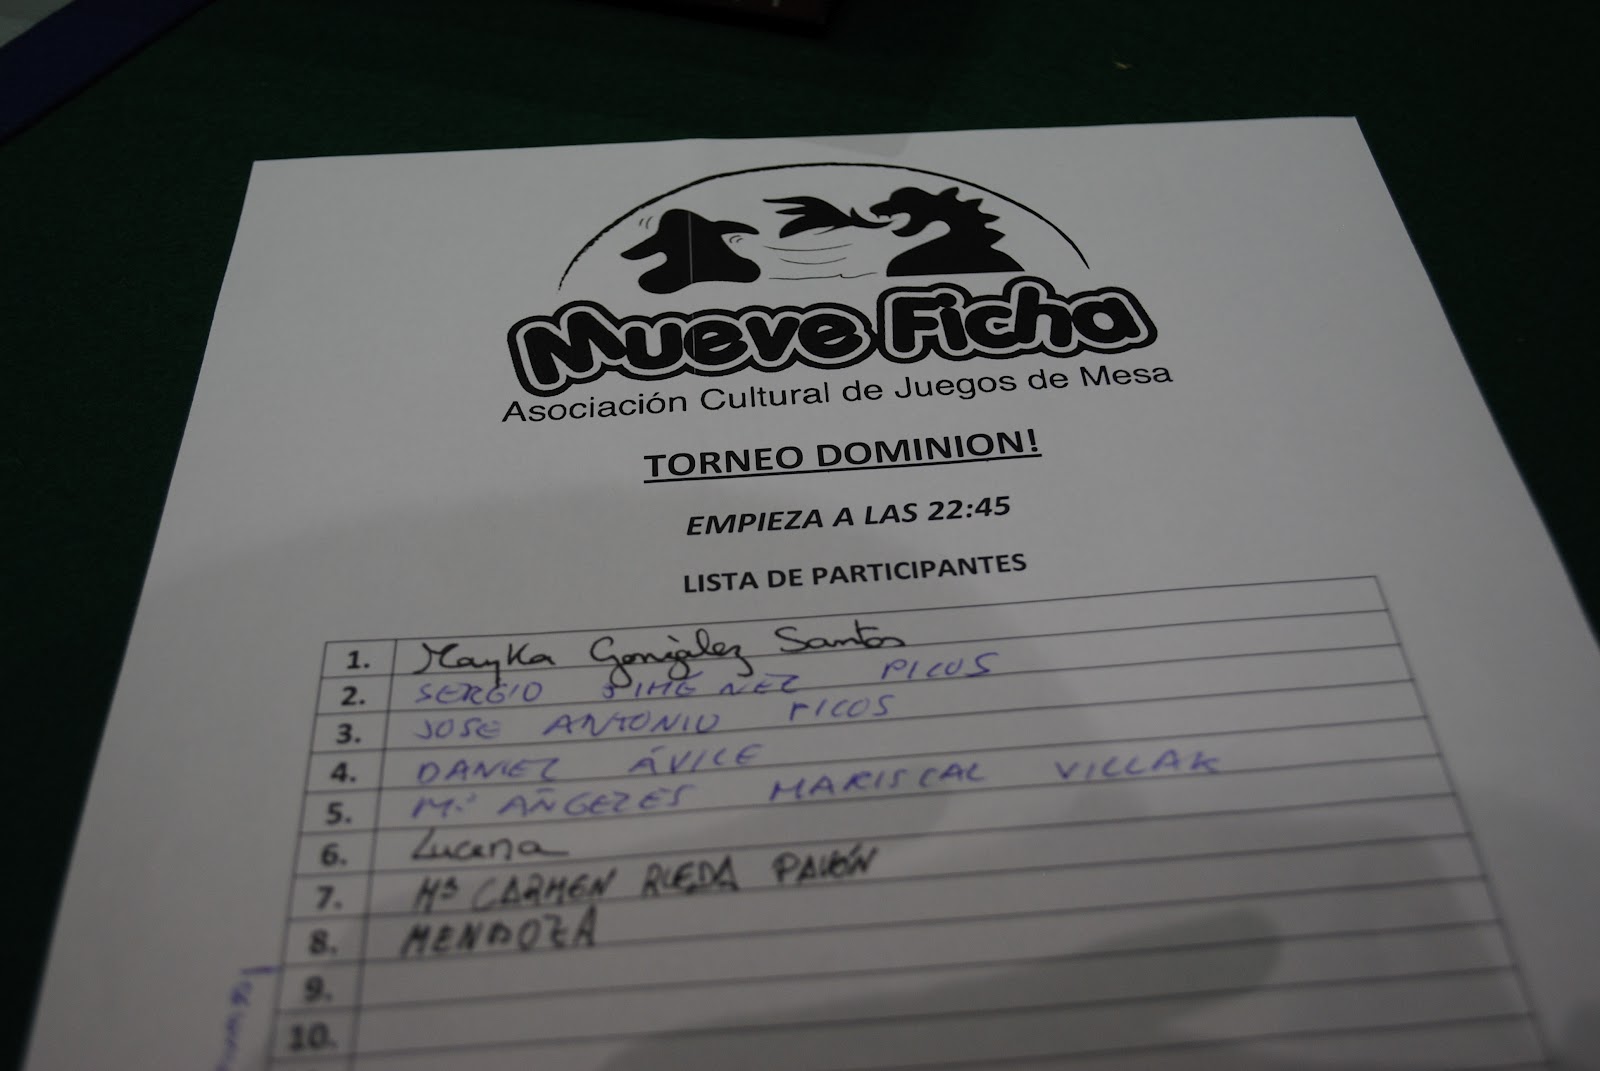 Mueve Ficha
Asociación Cultural de Juegos de Mesa
TORNEO DOMINION!
EMPIEZA A LAS 22:45
LISTA DE PARTICIPANTES
1. Mayka González Santos
2. SERGIO JIMÉNEZ PICOS
3. JOSE ANTONIO PICOS
4. DANIEL ÁVILE
5. Mª AÑGELES MARISCAL VILLAR
6. Lucena
7. Mª CARMEN RUEDA PAVÓN
8. MENDOZA
9.
10.